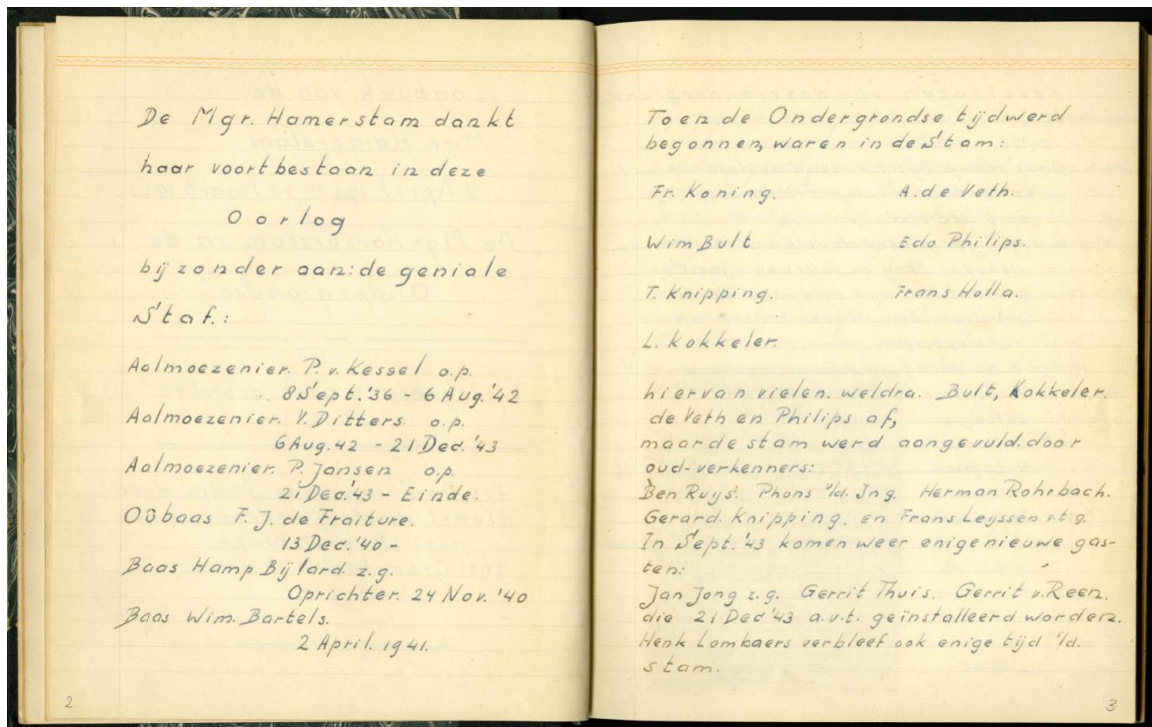 De Mgr. Hamerstam dankt
haar voortbestaan in deze
Oorlog
bijzonder aan: de geniale
Staf.:
Aalmoezenier. P. v. Kessel o.p.
8 Sept. '36 - 6 Aug. '42
Aalmoezenier. V. Ditters. o.p.
6 Aug. 42 - 21 Dec. '43
Aalmoezenier. P. Jansen o.p.
21 Dec. '43 - Einde.
Oŏbaas F. J. de Fraiture.
13 Dec. '40 -
Baas Hamp Bijlard. z.g.
Oprichter. 24 Nov. '40
Baas Wim. Bartels.
2 April. 1941.
2
Toen de Ondergrondse tijd werd
begonnen, waren in de Stam:
Fr. Koning. A. de Veth.
Wim Bult Edo Philips.
T. Knipping. Frans Holla.
L. Kokkeler.
hiervan vielen. weldra. Bult, Kokkeler,
de Veth en Philips af,
maar de stam werd aangevuld. door
oud-verkenners:
Ben Ruys. Phons v/d. Ing. Herman Rohrbach.
Gerard. Knipping. en Frans Leyssen v.t.g.
In Sept. '43 komen weer enige nieuwe gas-
ten:
Jan Jong z.g. Gerrit Thuis. Gerrit v. Reen.
die 21 Dec '43 a.v.t. geïnstalleerd worden.
Henk Lombaers verbleef ook enige tijd i/d.
stam.
3